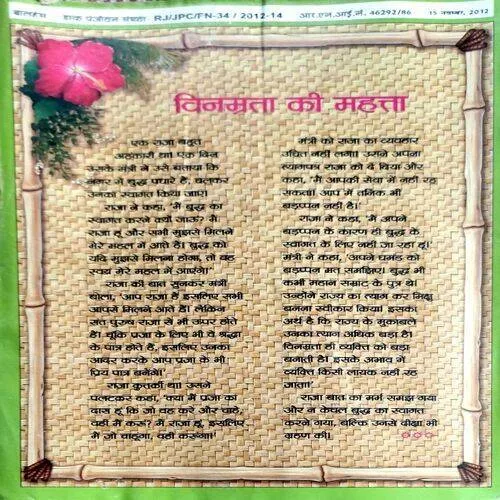 बालहंस डाक पंजीयन संख्या RJ/JPC/FN-34 / 2012-14 आर.एन.आई.नं. 46292/86 15 नवम्बर, 2012
विनम्रता की महत्ता
एक राजा बहुत
अहंकारी था। एक दिन
उसके मंत्री ने उसे बताया कि
नगर में बुद्ध पधारे हैं, चलकर
उनका स्वागत किया जाए।
राजा ने कहा, 'मैं बुद्ध का
स्वागत करने क्यों जाऊं? मैं
राजा हूं और सभी मुझसे मिलने
मेरे महल में आते हैं। बुद्ध को
यदि मुझसे मिलना होगा, तो वह
स्वयं मेरे महल में आएंगे।'
राजा की बात सुनकर मंत्री
बोला, 'आप राजा हैं इसलिए सभी
आपसे मिलने आते हैं। लेकिन
संत पुरुष राजा से भी ऊपर होते
हैं। चूंकि प्रजा के लिए भी वे श्रद्धा
के पात्र होते हैं, इसलिए उनका
आदर करके आप प्रजा के भी
प्रिय पात्र बनेंगे।'
राजा कुतर्की था। उसने
पलटकर कहा, 'क्या मैं प्रजा का
दास हूं कि जो वह करे और चाहे,
वही मैं करूं? मैं राजा हूं, इसलिए
मैं जो चाहूंगा, वही करूंगा।'
मंत्री को राजा का व्यवहार
उचित नहीं लगा। उसने अपना
त्यागपत्र राजा को दे दिया और
कहा, 'मैं आपकी सेवा में नहीं रह
सकता। आप में तनिक भी
बड़प्पन नहीं है।'
राजा ने कहा, 'मैं अपने
बड़प्पन के कारण ही बुद्ध के
स्वागत के लिए नहीं जा रहा हूं।'
मंत्री ने कहा, 'अपने घमंड को
बड़प्पन मत समझिए। बुद्ध भी
कभी महान सम्राट के पुत्र थे।
उन्होंने राज्य का त्याग कर भिक्षु
बनना स्वीकार किया। इसका
अर्थ है कि राज्य के मुकाबले
उनका त्याग अधिक बड़ा है।
विनम्रता ही व्यक्ति को बड़ा
बनाती है। इसके अभाव में
व्यक्ति किसी लायक नहीं रह
जाता।'
राजा बात का मर्म समझ गया
और न केवल बुद्ध का स्वागत
करने गया, बल्कि उनसे दीक्षा भी
ग्रहण की।